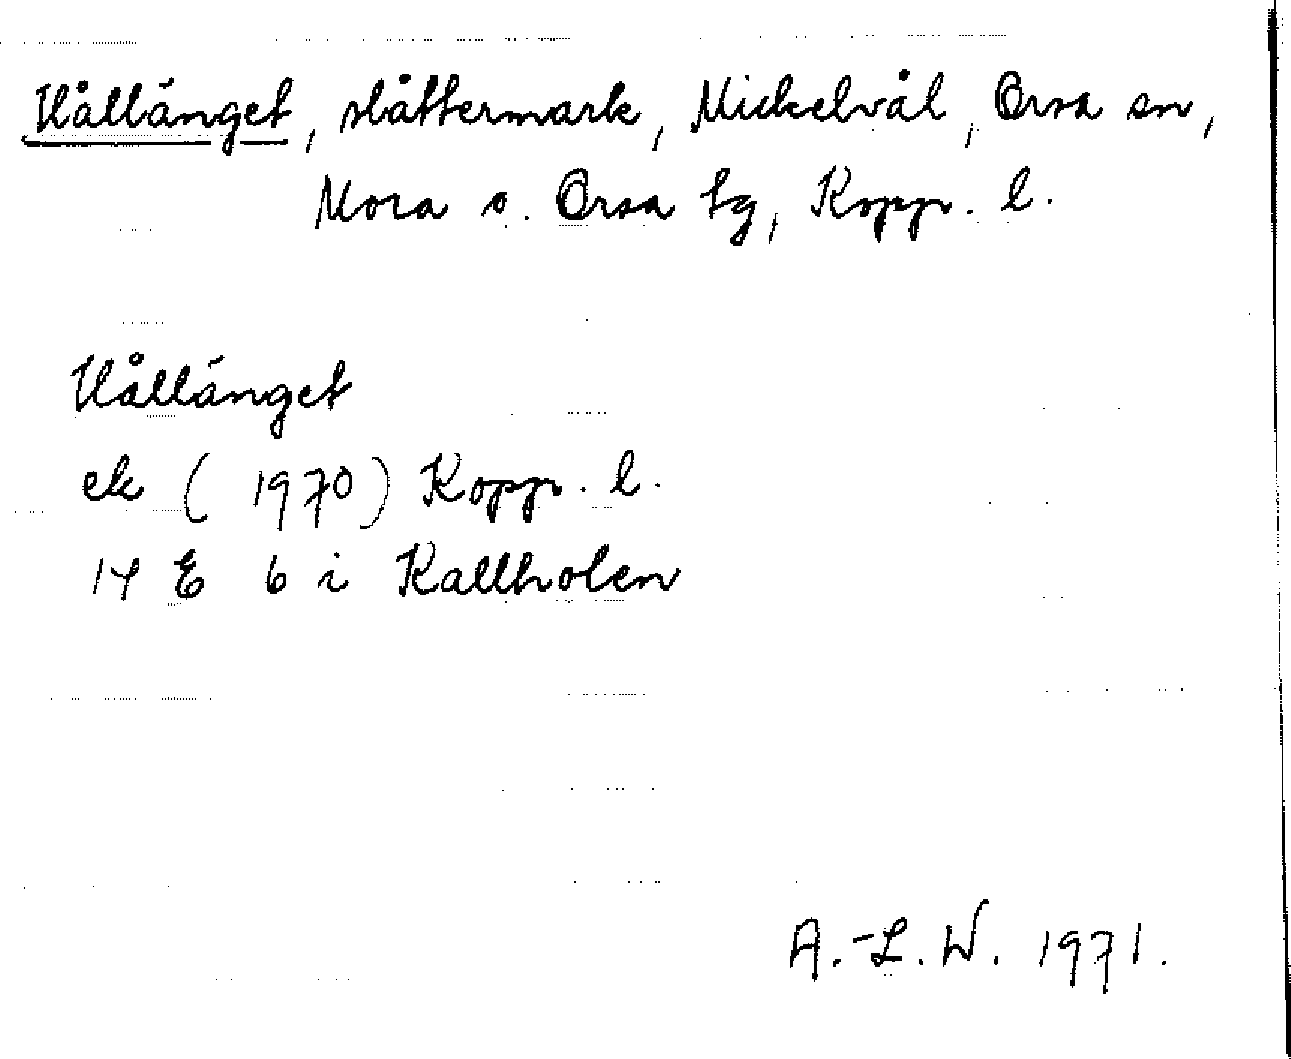 Vållänget, slåttermark, Mickelvål, Orsa sn,
Mora o. Orsa tg, Kopp. l.
Vållänget
ek (1970) Kopp. l.
14 E 6 i Kallholen
A.-L. W. 1971.